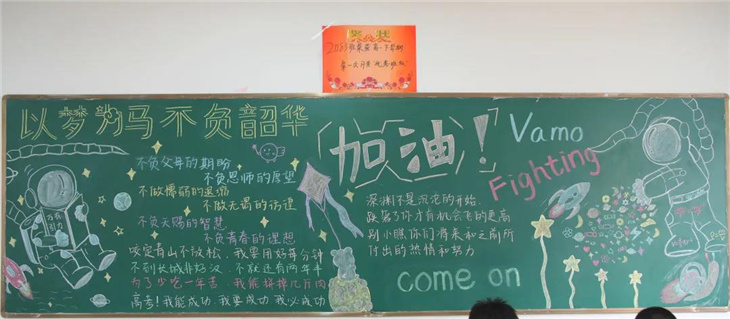 奖状
以梦为马不负韶华
不负父母的期盼
不负恩师的厚望
不做懦弱的退缩
不做无谓的彷徨
不负天赐的智慧
不负青春的理想
咬定青山不放松,我要用好每分钟
不到长城非好汉,不就还有两年半
为了少吃一年苦,我能拼掉几斤肉
高考!我能成功 我要成功 我必成功
加油!
深渊不是沉沦的开始
跌落万仞才有机会飞的更高
别小瞧你们将来和之前所
付出的热情和努力
come on
Vamo
Fighting